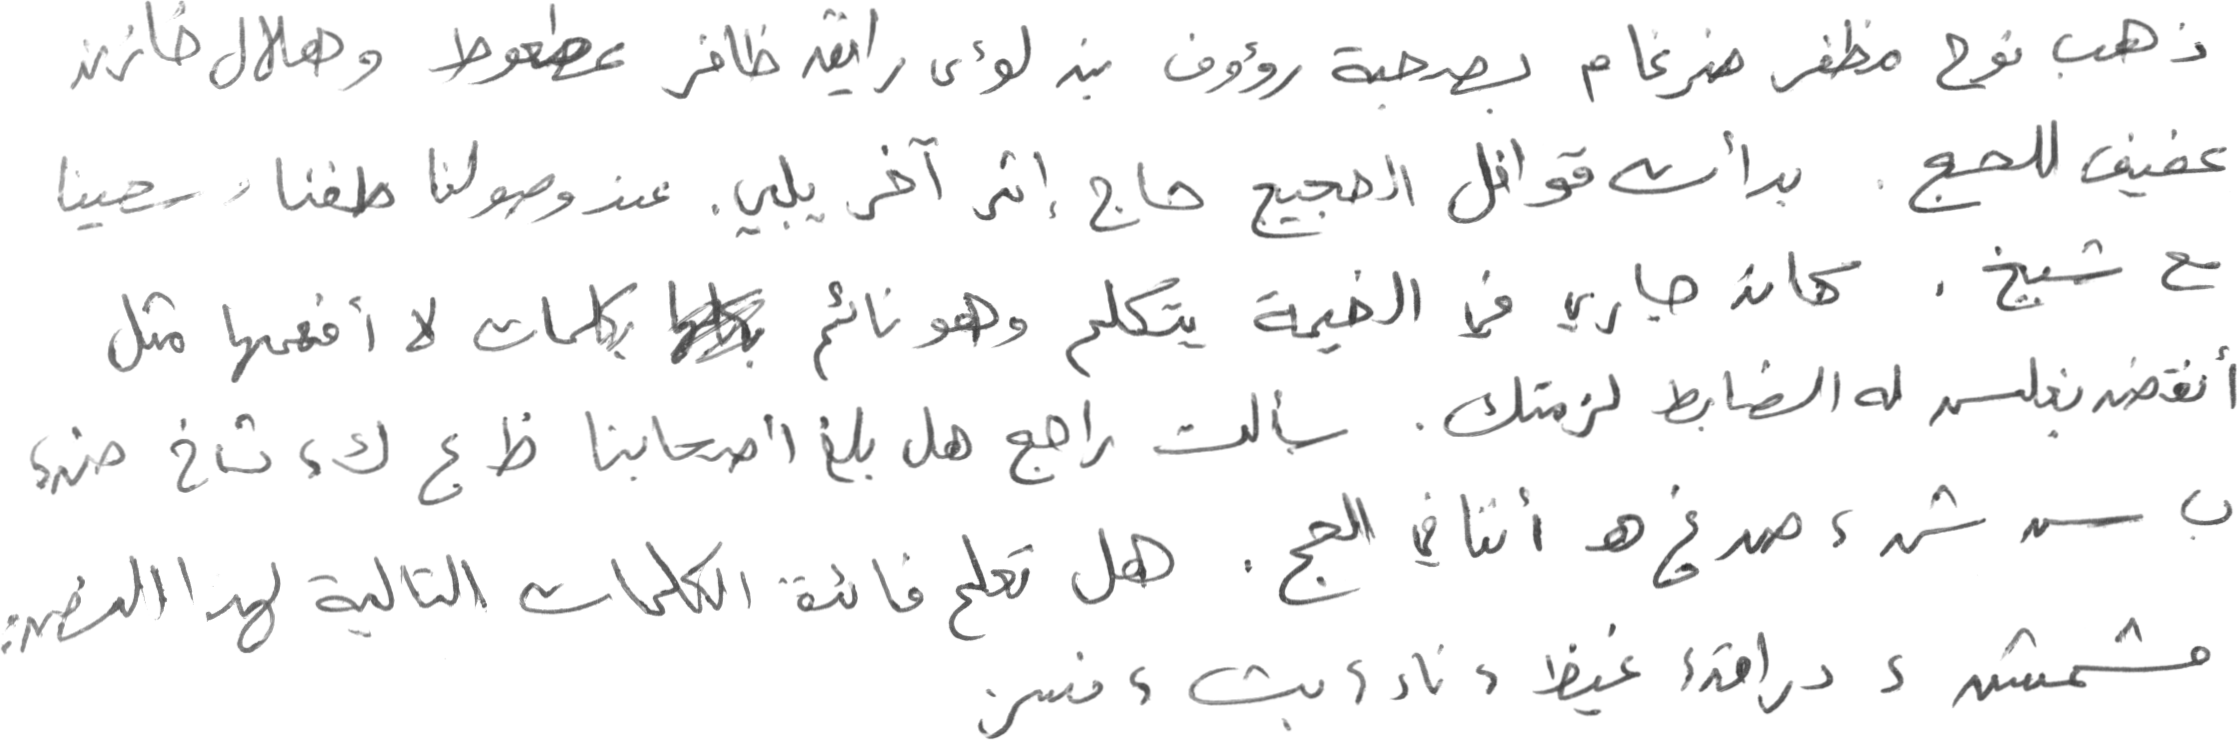 ذهب نوح مظفر ضرغام بصحبة رؤوف بن لؤى رايق ظافر عطعوط وهلال خازن
عفيف للحج . بدأت قوافل الحجيج حاج إثر آخر يلبي . عند وصولنا طفنا وسعينا
مع شيخ . كان جاري في الخيمة يتكلم وهو نائم بكلمات لا أفهمها مثل
أنقض بغلس له الضابط لزمتك . سألت راجح هل بلغ أصحابنا ظ ع ك ، ث خ ض ،
ب س ش ، ص غ هـ أننا في الحج . هل تعلم فائدة الكلمات التالية لهذا النص :
مشمش ، دراق ، غيظ ، ناد ، بث ،